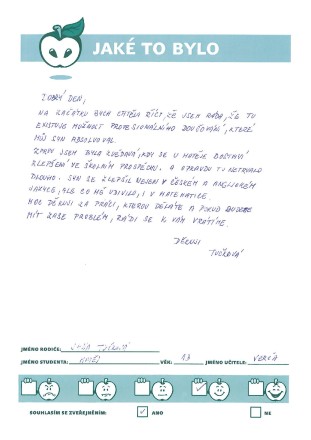 JAKÉ TO BYLO
DOBRÝ DEN,
NA ZAČÁTKU BYCH CHTĚLA ŘÍCT, ŽE JSEM RÁDA, ŽE TU
EXISTUJE MOŽNOST PROFESIONÁLNÍHO DOUČOVÁNÍ, KTERÉ
MŮJ SYN ABSOLVOVAL.
JSEM BYLA ZVĚDAVÁ, KDY SE U MATĚJE DOSTAVÍ
ZLEPŠENÍ VE ŠKOLNÍM PROSPĚCHU. A OPRAVDU TO NETRVALO
DLOUHO. SYN SE ZLEPŠIL NEJEN V ČESKÉM A ANGLICKÉM
JAZYCE, ALE CO MĚ UDIVILO, I V MATEMATICE.
MOC DĚKUJI ZA PRÁCI, KTEROU DĚLÁTE A POKUD BUDEME
MÍT ZASE PROBLÉM, RÁDI SE K VÁM VRÁTÍME.
DĚKUJI
JMÉNO RODIČE:
JMÉNO STUDENTA: MATĚJ VĚK: 13 JMÉNO UČITELE:
SOUHLASÍM SE ZVEŘEJNĚNÍM: ✓ ANO NE